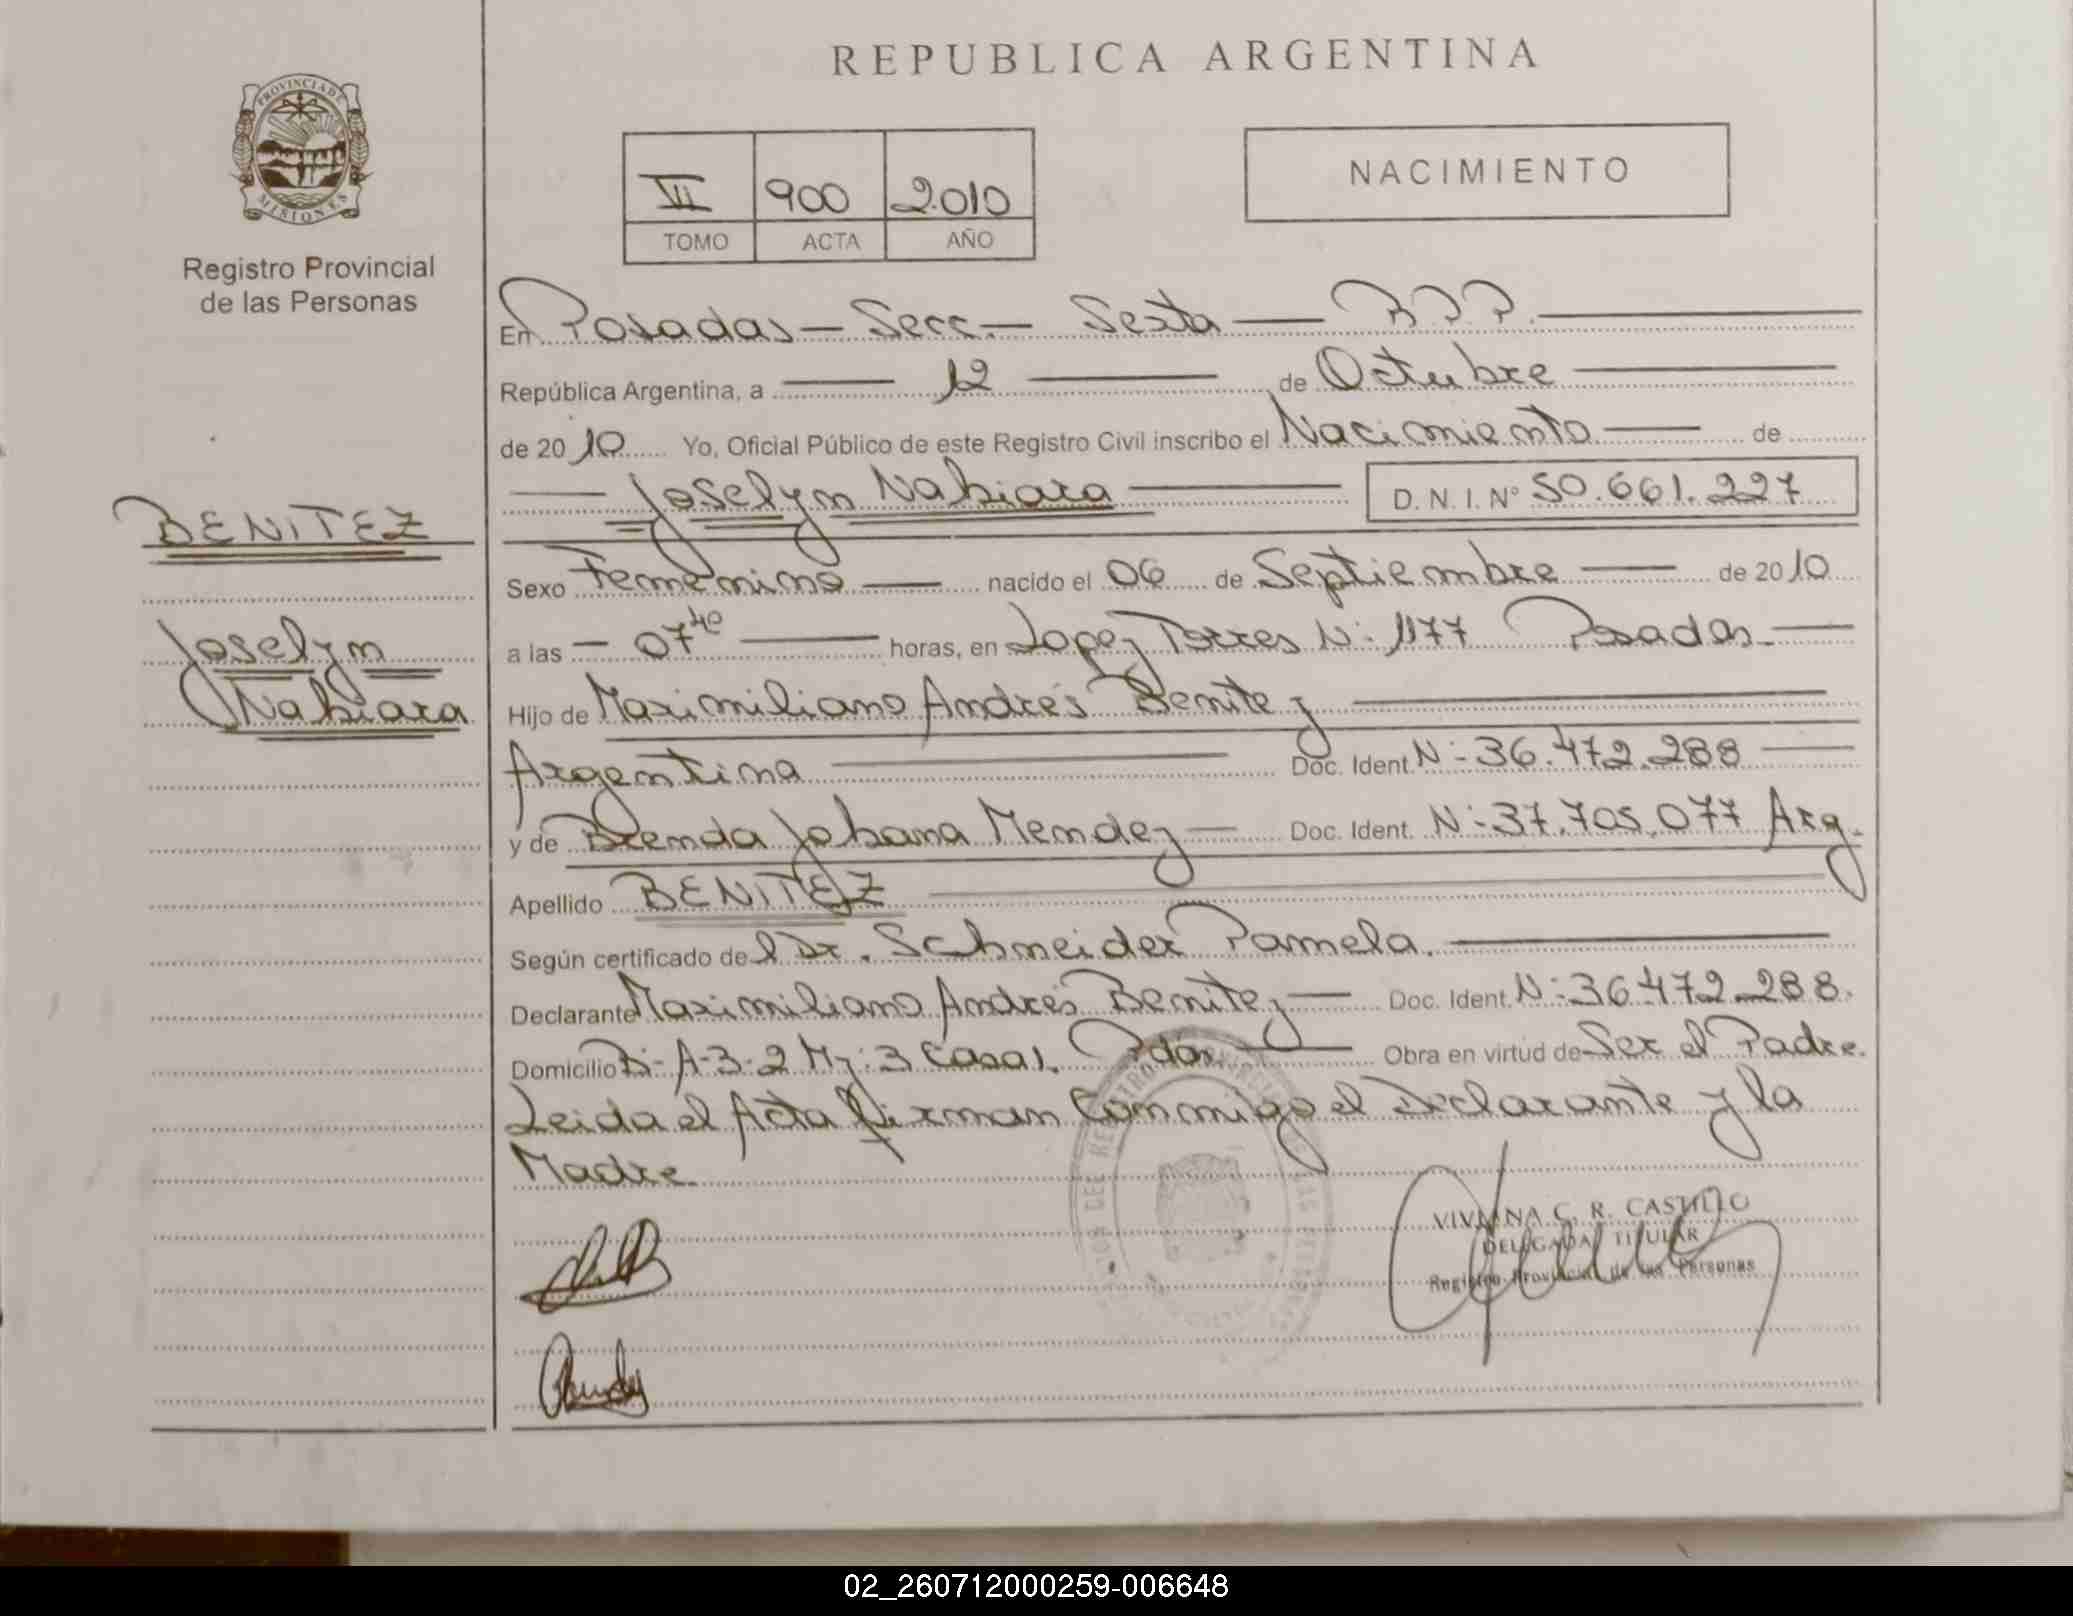 REPUBLICA ARGENTINA
PROVINCIA DE
MISIONES
Registro Provincial
de las Personas
VII 900 2010
TOMO ACTA AÑO
NACIMIENTO
En Posadas — Secc. — Sexta —
República Argentina, a — 12 — de Octubre —
de 2010 Yo, Oficial Público de este Registro Civil inscribo el Nacimiento — de
— Joselyn Nahiara — D.N.I. Nº 50.661.227
BENITEZ
Joselyn
Nahiara
Sexo Femenino — nacido el 06 de Septiembre — de 2010
a las — 07 40 — horas, en Lopez Torres N: 1177 Posadas —
Hijo de Maximiliano Andrés Benitez —
Argentina — Doc. Ident. N: 36.472.288 —
y de Brenda Johana Mendez — Doc. Ident. N: 37.705.077 Arg.
Apellido BENITEZ —
Según certificado de l Dr. Schneider Pamela. —
Declarante Maximiliano Andrés Benitez — Doc. Ident. N: 36.472.288.
Domicilio B: A-3-2 Mz: 3 Casa 1. Pdas — Obra en virtud de Ser el Padre.
Leida el Acta firman Conmigo el Declarante y la
Madre.
VIVIANA C. R. CASTILLO
DELEGADA TITULAR
Registro Provincial de las Personas
02_260712000259-006648